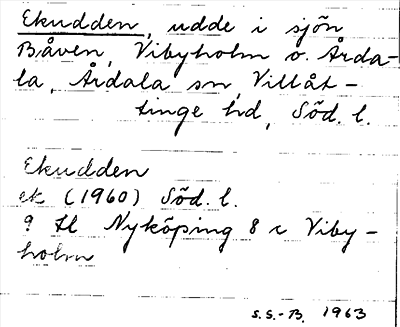 Ekudden, udde i sjön
Båven, Vibyholm o. Årda-
la, Årdala sn, Villåt-
tinge hd, Söd. l.
Ekudden
ek (1960) Söd. l.
9 H Nyköping 8 c Viby-
holm
S.S.-B. 1963